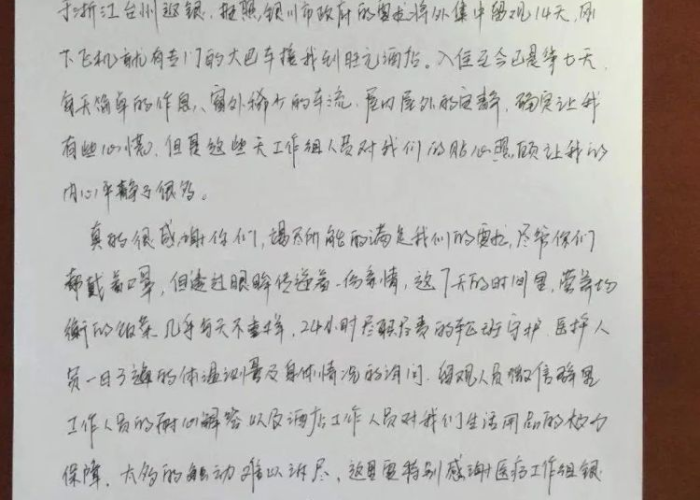 于浙江台州返银,按照银川市政府的要求将外集中留观14天,刚
下飞机就有专门的大巴车接我到旺元酒店。入住至今已是第七天,
每天简单的作息、窗外稀少的车流、屋内屋外的安静,确实让我
有些心慌,但是这些天工作组人员对我们的贴心照顾让我的
内心平静了很多。
真的很感谢你们,竭尽所能的满足我们的要求,尽管你们
都戴着口罩,但透过眼眸传递着一份亲情,这7天的时间里,营养均
衡的饭菜几乎每天不重样,24小时尽职尽责的轮班守护,医护人
员一日多遍的体温测量及身体情况的询问,留观人员微信群里
工作人员的耐心解答以及酒店工作人员对我们生活用品的极力
保障,太多的触动难以诉尽,这里要特别感谢医疗工作组银